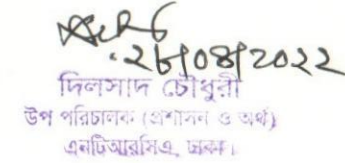 ২৮/০৪/২০২২
দিলসাদ চৌধুরী
উপ পরিচালক (প্রশাসন ও অর্থ)
এনটিআরসিএ, ঢাকা।